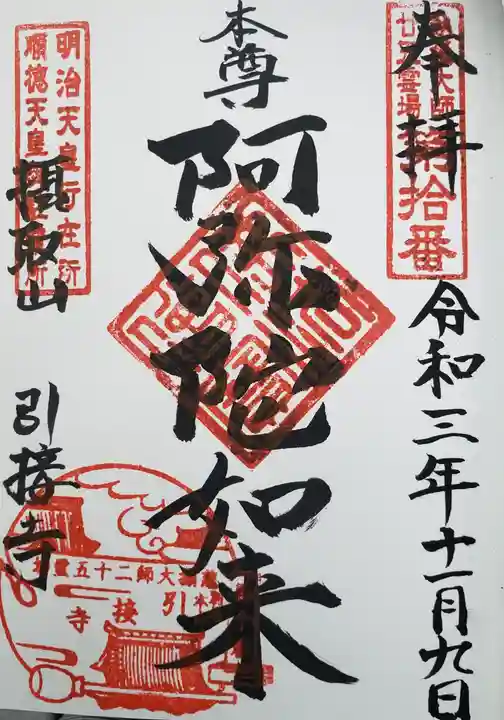 奉拝
第拾番
令和三年十一月九日
本尊
阿弥陀如来
明治天皇行在所
順徳天皇
摂取山
引接寺
大師二十五霊
引接寺